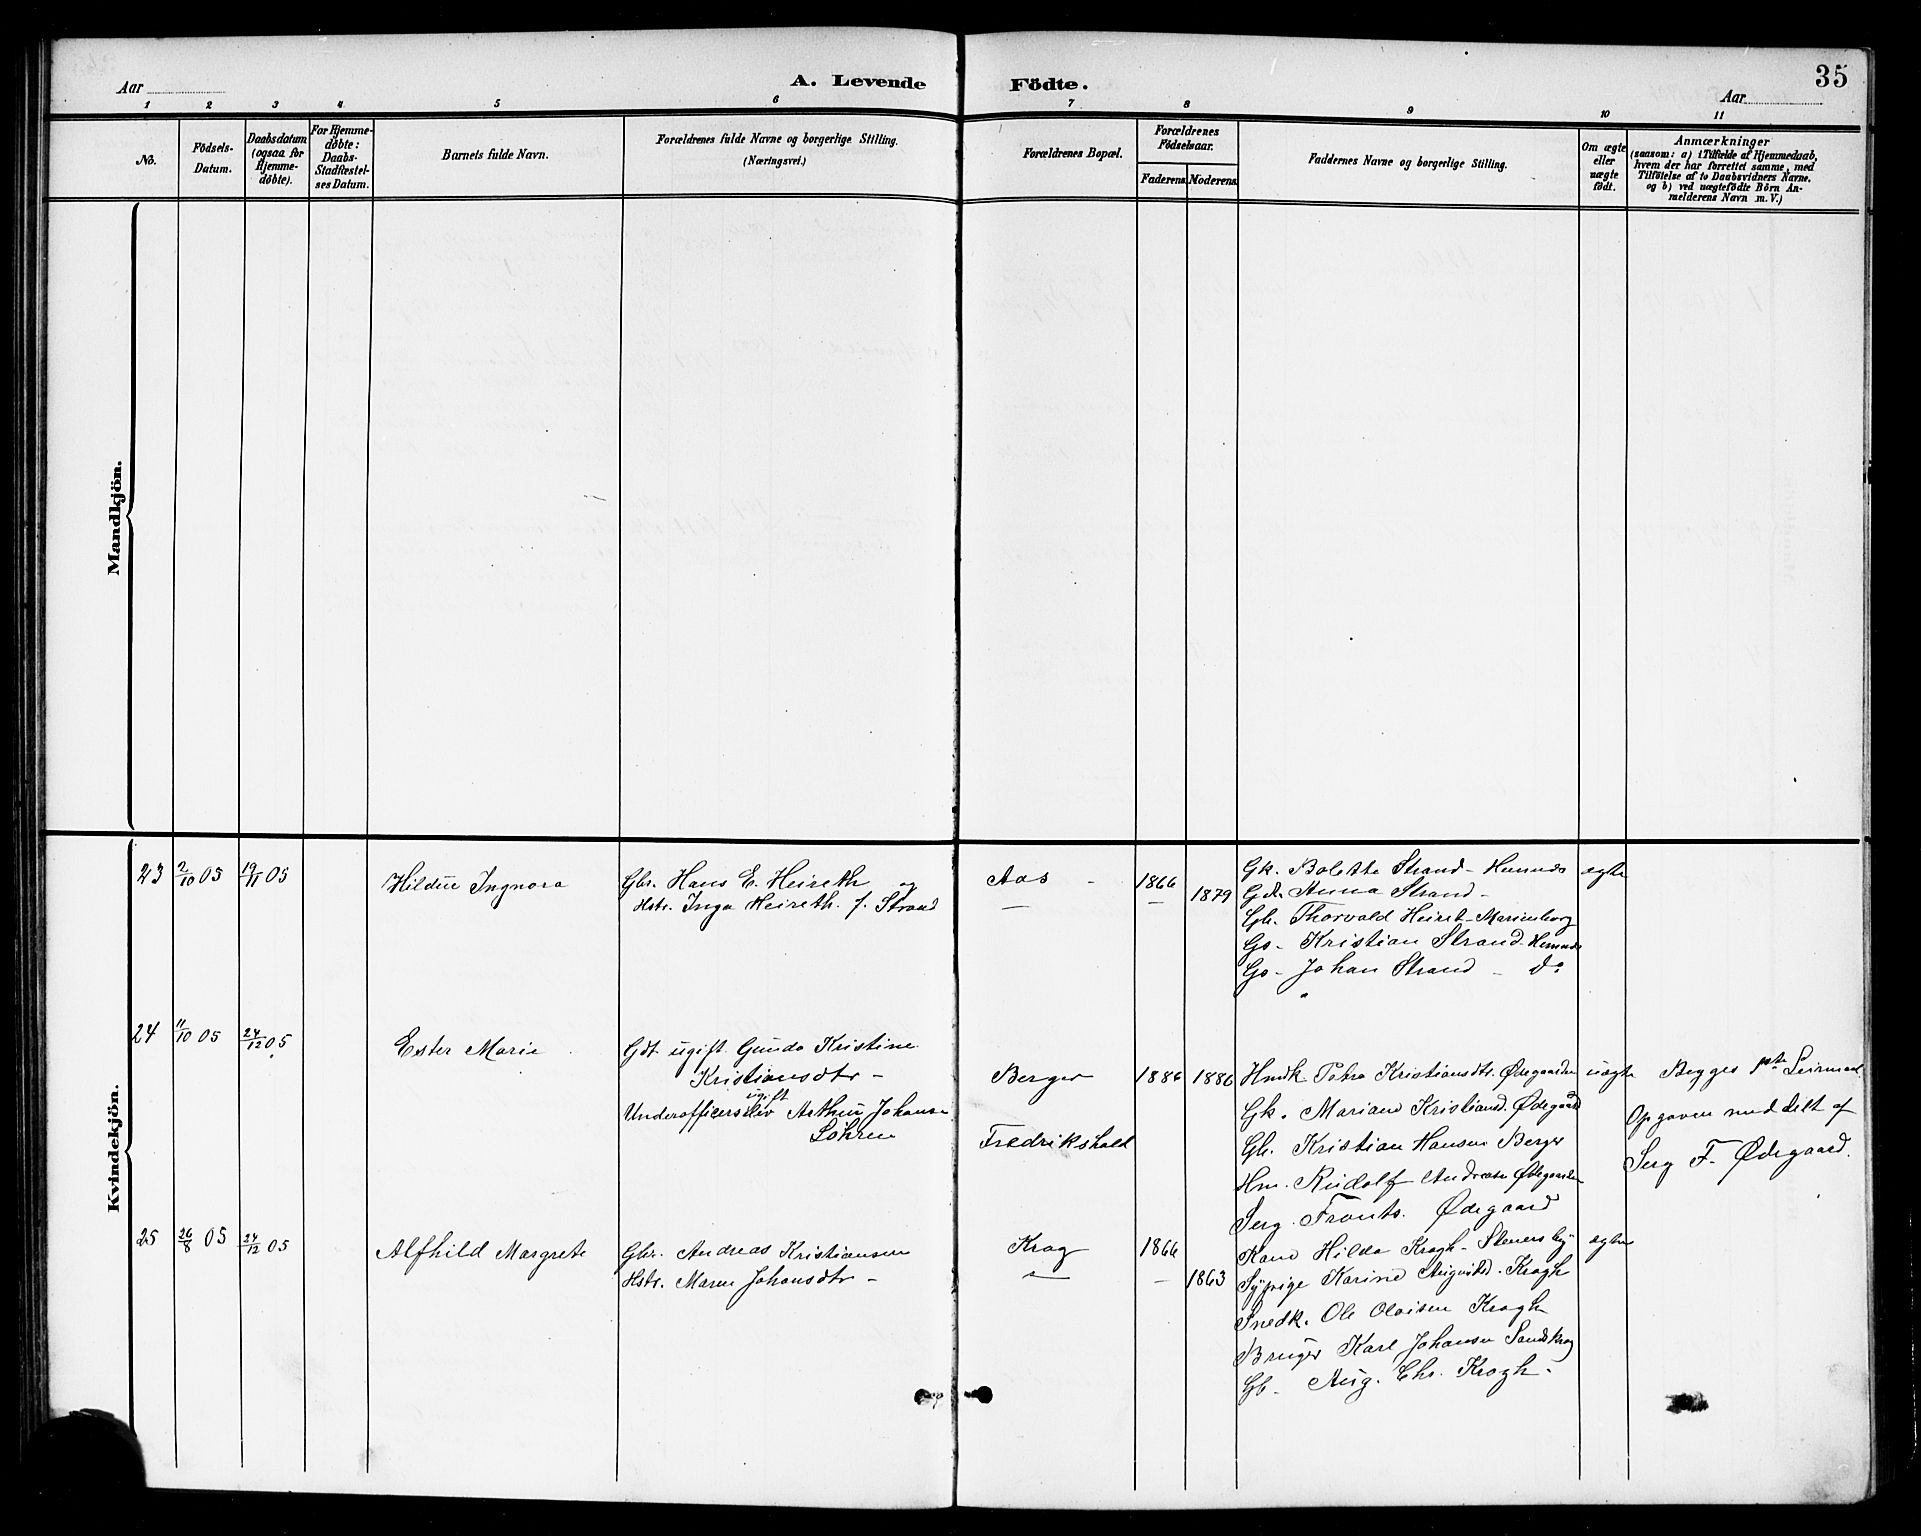 35
A. Levende Födte.
Aar
Aar
1 2 3 4 5 6 7 8 9 10 11
No.
Födsels-
Datum.
Daabsdatum
(ogsaa for
Hjemme-
döbte).
For Hjemme-
döbte:
Daabs-
Stadfæstel-
ses Datum.
Barnets fulde Navn.
Forældrenes fulde Navne og borgerlige Stilling.
(Næringsvei.)
Forældrenes Bopæl.
Forældrenes
Födselsaar.
Faderens.
Moderens.
Faddernes Navne og borgerlige Stilling.
Om ægte
eller
uægte
födt.
Anmærkninger
(saasom: a) i Tilfælde af Hjemmedaab,
hvem der har forrettet samme, med
Tilföielse af to Daabsvidners Navne.
og b) ved uægtefödte Börn An-
melderens Navn m. V.)
Mandkjön.
Kvindekjön.
23 2/10 05 19/11 05
Hildur Ingnora
Gbr. Hans E. Heireth og
Hstr. Inga Heireth f. Strand
Aas -
1866 1879
Gk. Bolette Strand - Hemnes
Gdt. Anna Strand -
Gb. Thorvald Heiret - Marienborg
Gs - Kristian Strand - Hemnes
Gs - Johan Strand - do
ægte
24 11/10 05 24/12 05
Ester Marie
Gdt ugift Gunda Kristine
Kristiansdtr -
Underofficerselev ugift Arthur Johansen
Löhren
Berger
Fredrikshald
1886 1886
Hmdk Petra Kristiansdtr. Ødegaarden
Gk. Mariane Kristiansd. Ødegaard
Gb. Kristian Hansen Berger
Hm. Rudolf Andreasen Ødegaarden
Serg. Frants. Ødegaard
uægte
Begges 1ste Leiermaal
Opgaven meddelt af
Serg F. Ødegaard.
25 26/8 05 24/12 05
Alfhild Margrete
Gbr. Andreas Kristiansen
Hstr. Maren Johansdtr -
Krog
1866 1863
Kone Hilda Krogh - Stenersby
Sypige Karine Augustsd. Krogh
Snedk. Ole Olaisen Krogh
Bruger Karl Johansen Sandskrog
Gb - Aug. Chr. Krogh -
ægte